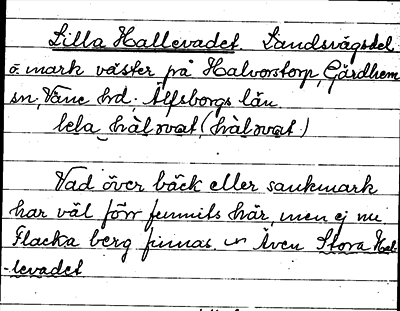 Lilla Hallevadet. Landsvägsdel
å mark väster på Halvorstorp, Gärdhem
sn, Väne hd. Älfsborgs län.
lela hàlovat (hàlovat)
Vad över bäck eller sankmark
har väl förr funnits här, men ej nu
Flacka berg finnas. Även Stora Hal-
-levadet